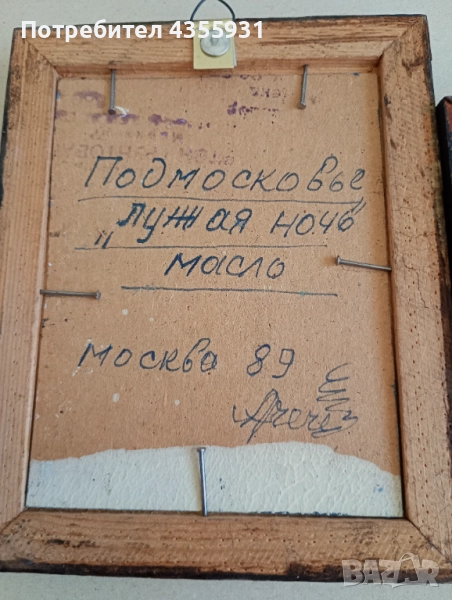 Потребител 4355931
Подмосковье
"лужая ночь"
масло
москва 89
BAZAR